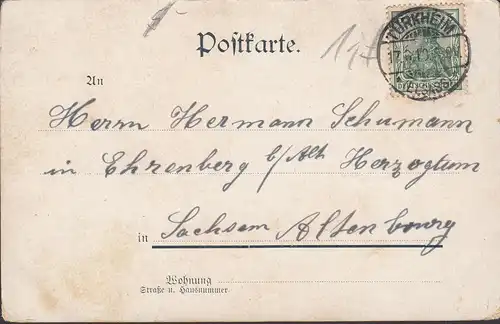 Postkarte.
TÜRKHEIM
An
Herrn Hermann Schumann
in Ehrenberg b/Alt Herzogtum
in Sachsen Altenbourg
Wohnung
Straße u. Hausnummer